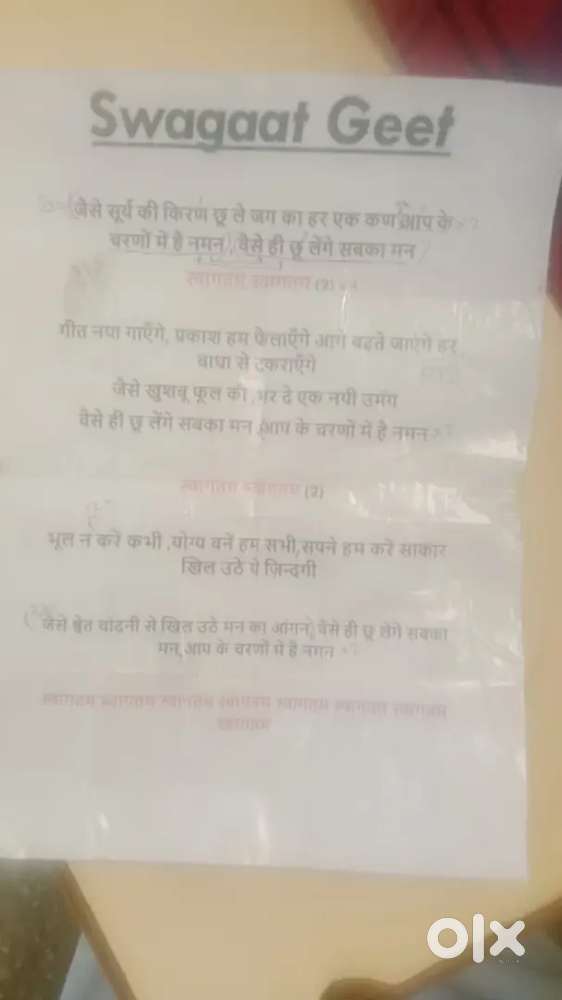 Swagaat Geet
जैसे सूर्य की किरण छू ले जग का हर एक कण आप के
चरणों में है नमन, वैसे ही छू लेंगे सबका मन
स्वागतम स्वागतम (2)
गीत नया गाएँगे, प्रकाश हम फैलाएँगे आगे बढ़ते जाएंगे हर
बाधा से टकराएँगे
जैसे खुशबू फूल की ,भर दे एक नयी उमंग
वैसे ही छू लेंगे सबका मन ,आप के चरणों में है नमन
स्वागतम स्वागतम (2)
भूल न करें कभी ,योग्य बनें हम सभी,सपने हम करें साकार
खिल उठे ये ज़िन्दगी
जैसे श्वेत चांदनी से खिल उठे मन का आंगन, वैसे ही छू लेंगे सबका
मन,आप के चरणों में है नमन
स्वागतम स्वागतम स्वागतम स्वागतम स्वागतम स्वागतम स्वागतम
स्वागतम
olx